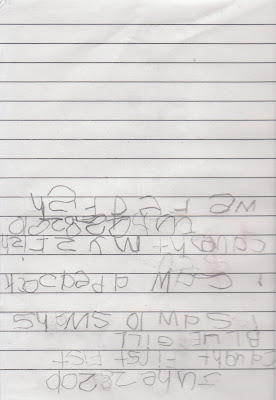 June 282010
caught First FISh
BLUE GILL
I SaW 10 SWaNS
I saw a Peacock
caught MY 2 Fish
We Fed Fish